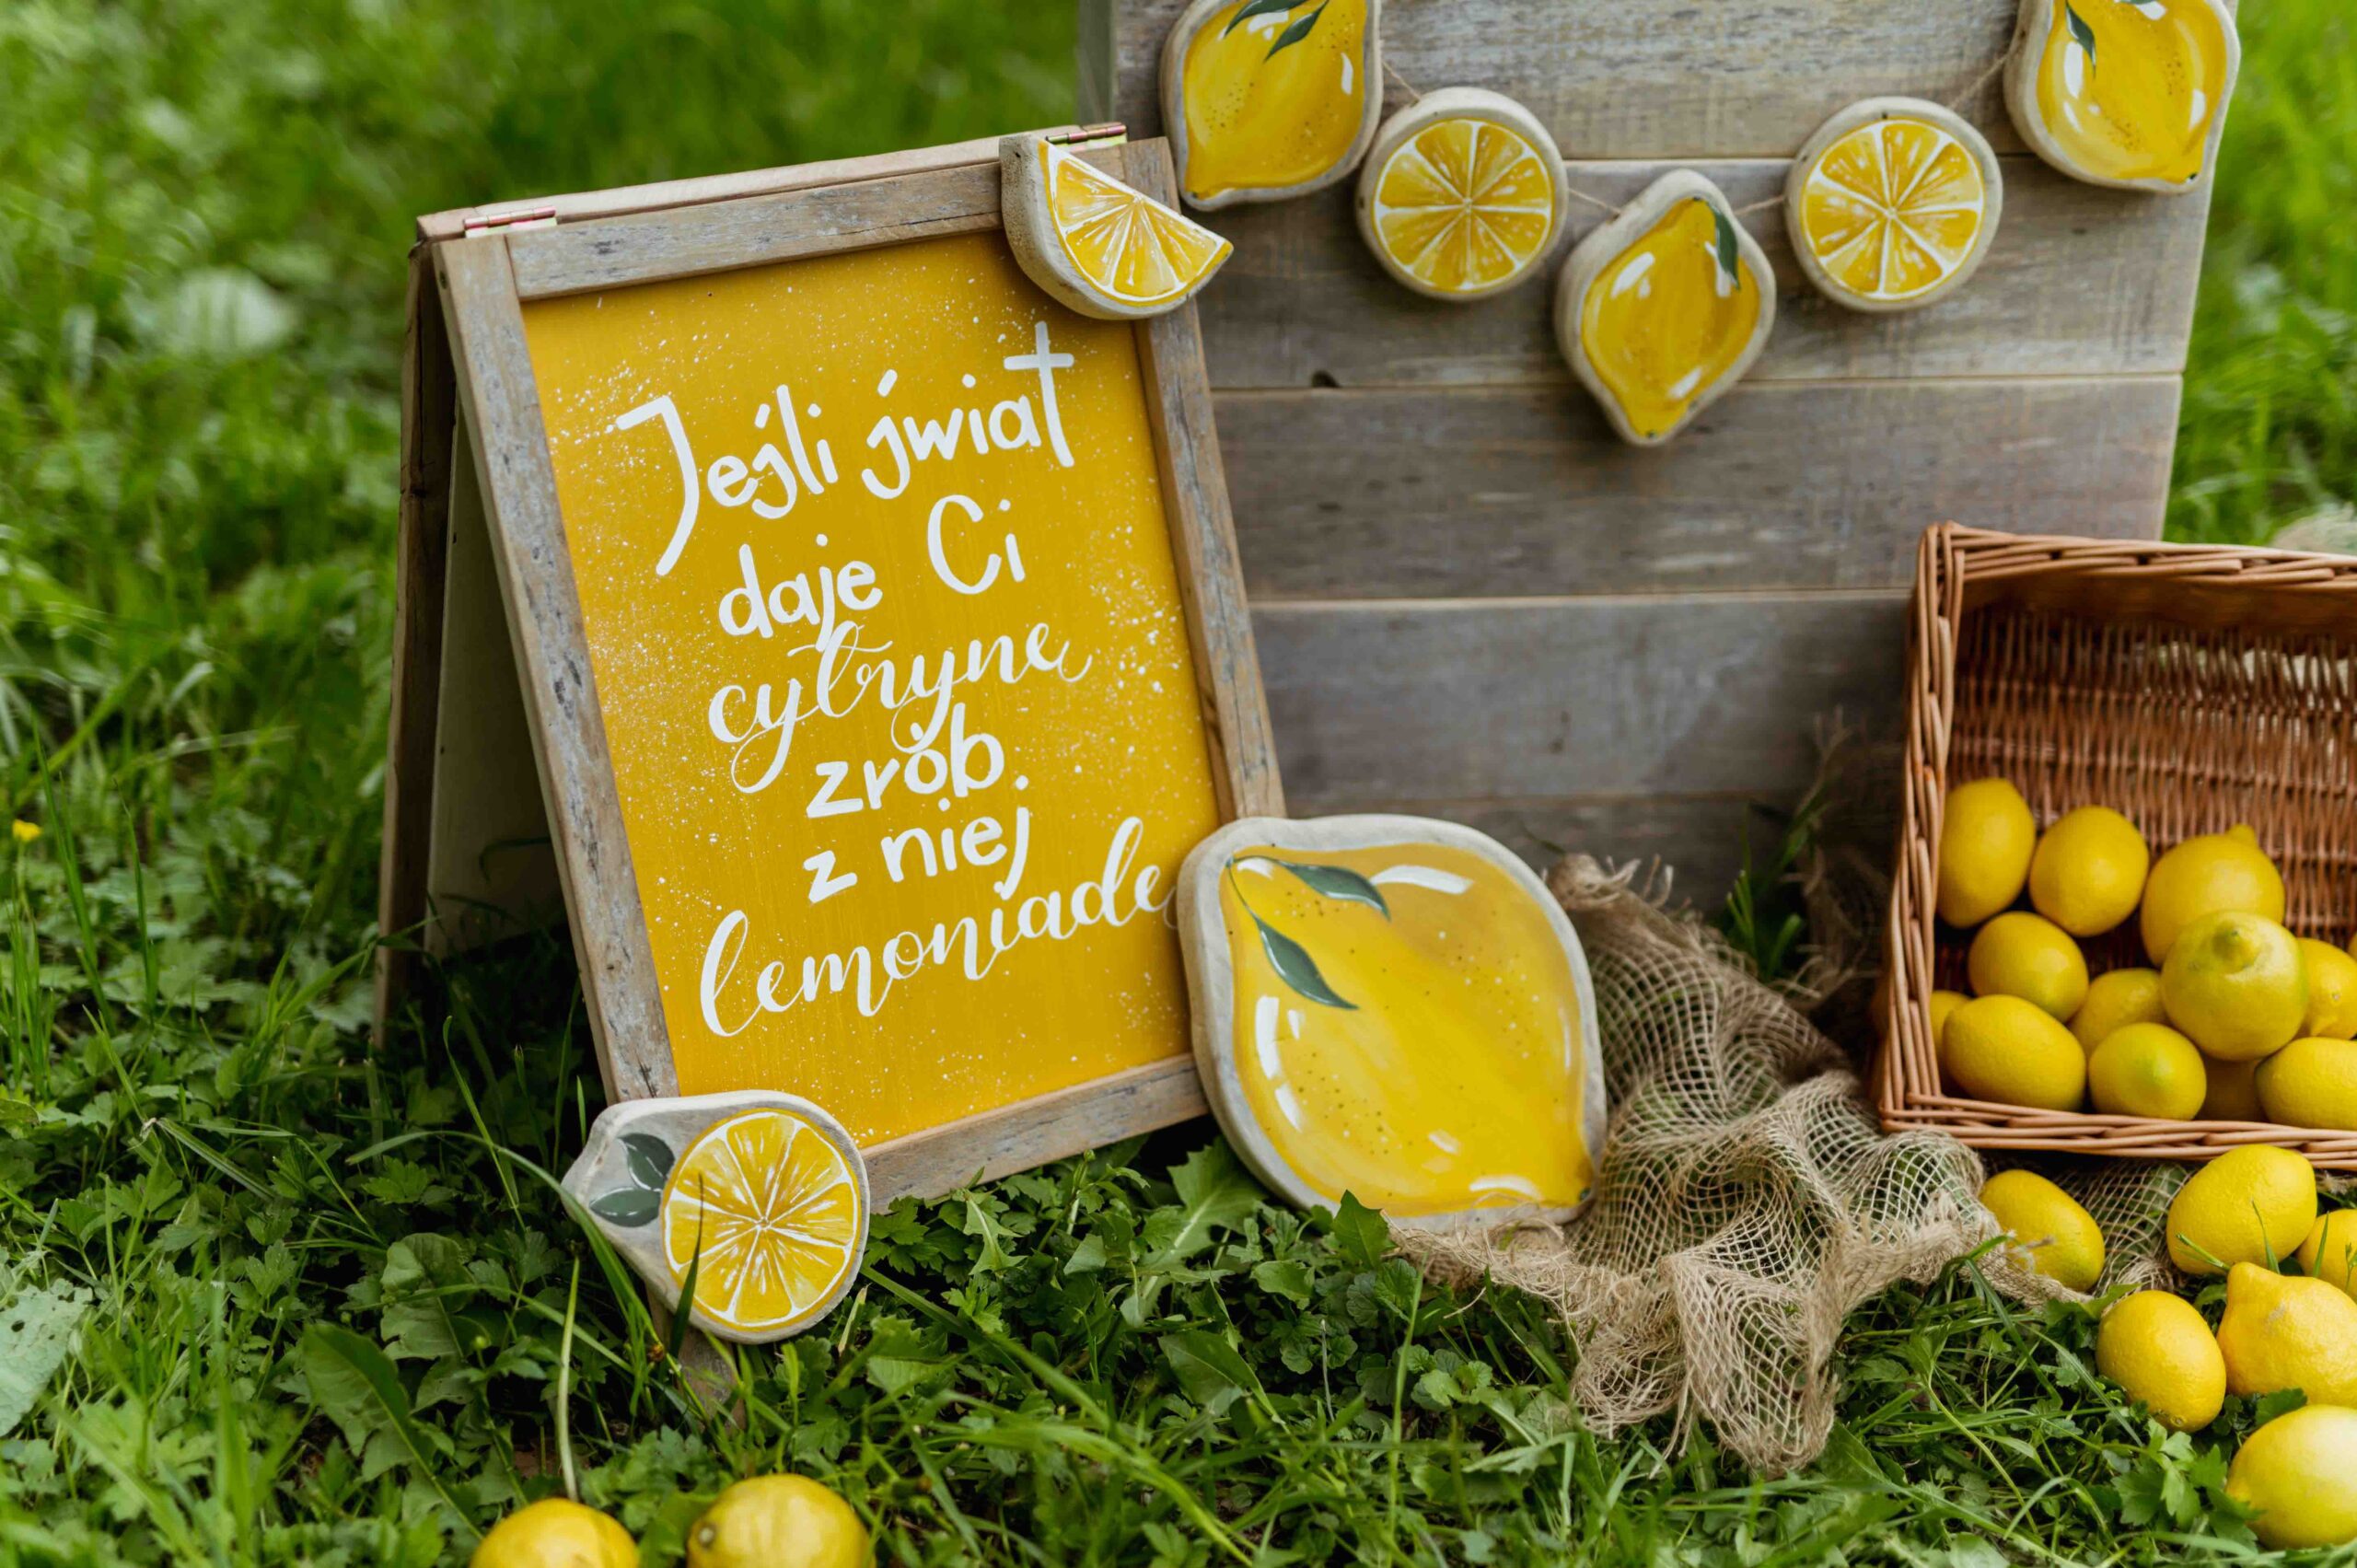 Jeśli świat
daje Ci
cytrynę
zrób
z niej
lemoniadę